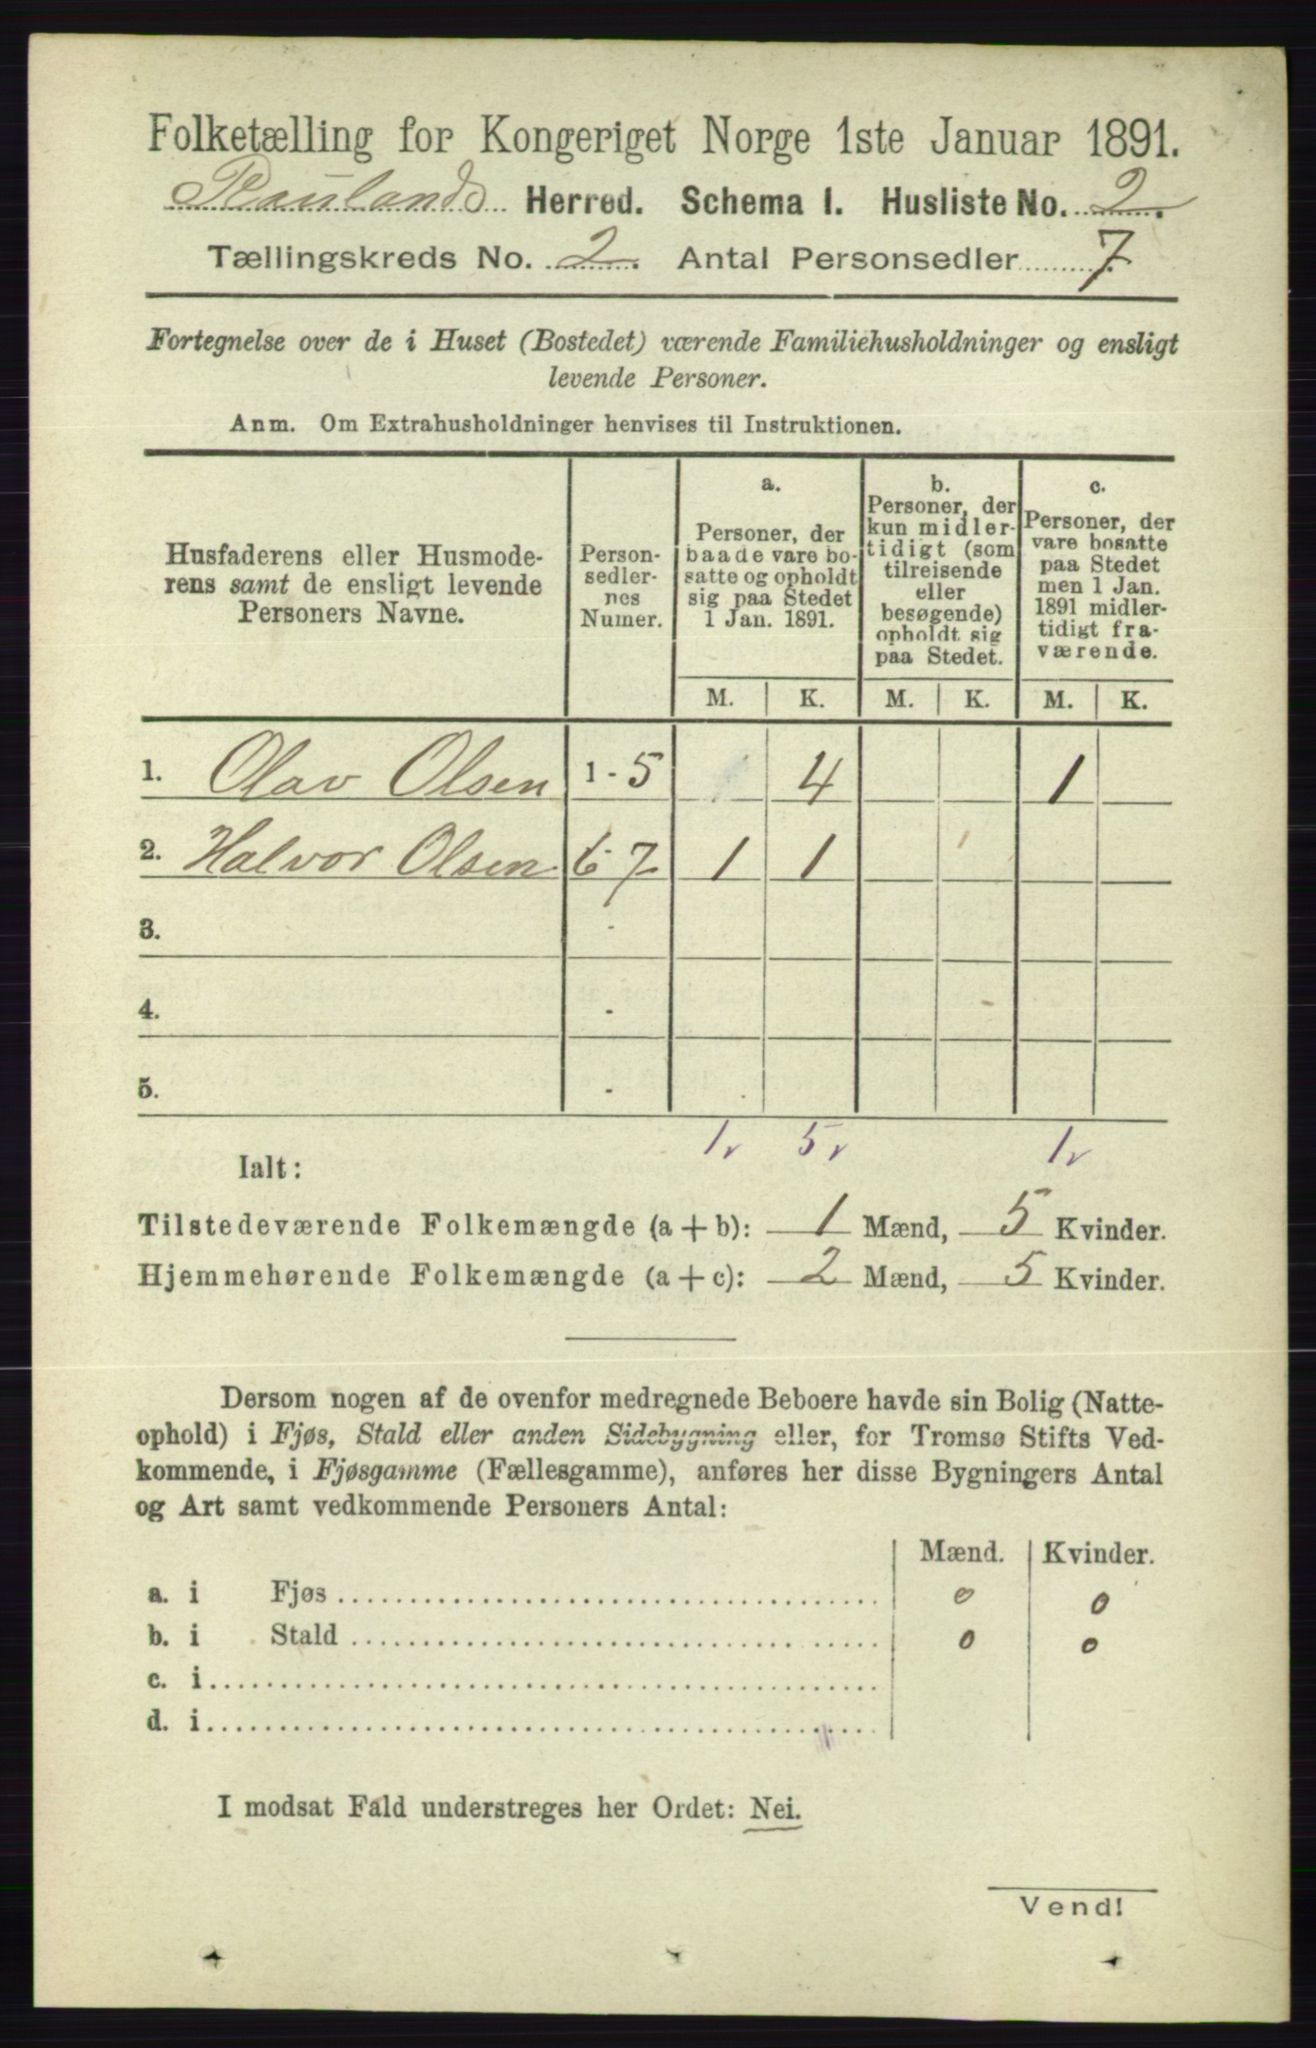 Folketælling for Kongeriget Norge 1ste Januar 1891.
Raulands Herred. Schema I. Husliste No. 2.
Tællingskreds No. 2. Antal Personsedler 7
Fortegnelse over de i Huset (Bostedet) værende Familiehusholdninger og ensligt
levende Personer.
Anm. Om Extrahusholdninger henvises til Instruktionen.
Husfaderens eller Husmode-
rens samt de ensligt levende
Personers Navne.
Person-
sedler-
nes
Numer.
a.
Personer, der
baade vare bo-
satte og opholdt
sig paa Stedet
1 Jan. 1891.
b.
Personer, der
kun midler-
tidigt (som
tilreisende
eller
besøgende)
opholdt sig
paa Stedet.
c.
Personer, der
vare bosatte
paa Stedet
men 1 Jan.
1891 midler-
tidigt fra-
værende.
M. K. M. K. M. K.
1. Olav Olsen 1 - 5 4 1
2. Halvor Olsen 6 - 7 1 1
3. -
4. -
5. -
1 5 1
Ialt:
Tilstedeværende Folkemængde (a + b): 1 Mænd, 5 Kvinder.
Hjemmehørende Folkemængde (a + c): 2 Mænd, 5 Kvinder.
Dersom nogen af de ovenfor medregnede Beboere havde sin Bolig (Natte-
ophold) i Fjøs, Stald eller anden Sidebygning eller, for Tromsø Stifts Ved-
kommende, i Fjøsgamme (Fællesgamme), anføres her disse Bygningers Antal
og Art samt vedkommende Personers Antal:
Mænd. Kvinder.
a. i Fjøs 0 0
b. i Stald 0 0
c. i
d. i
I modsat Fald understreges her Ordet: Nei.
Vend!